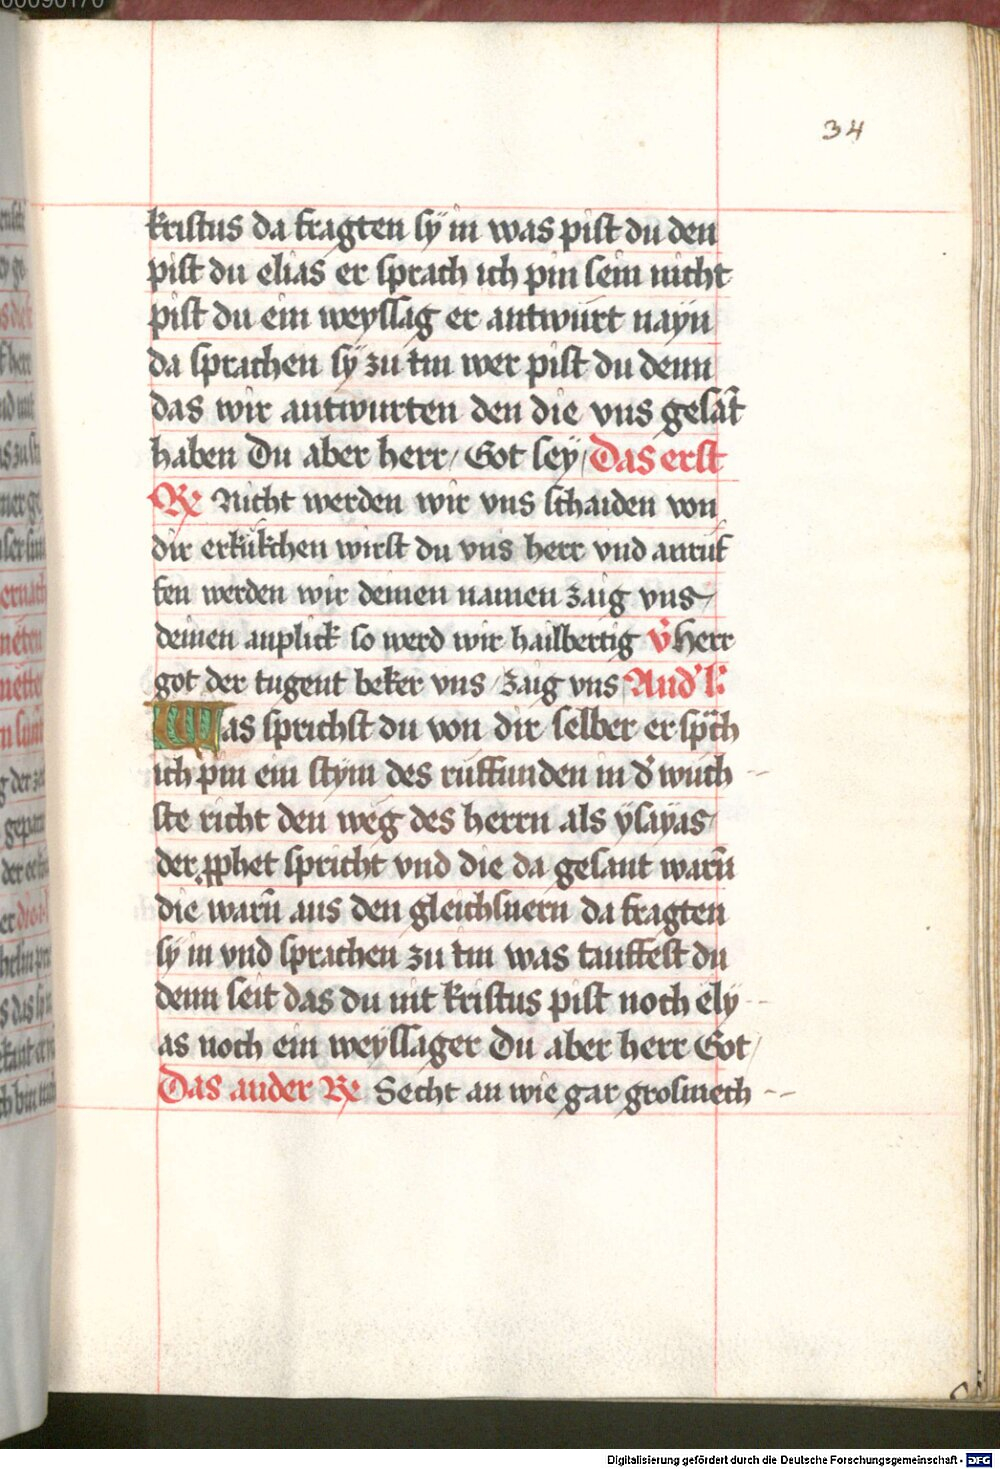 34
kristus da fragten sÿ in was pist du den
pist du elias er sprach ich pin sein nicht
pist du ein weyssag er antwurt nayn
da sprachen sÿ zu im wer pist du denn
das wir antwurten den die vns gesāt
haben Du aber herr / Got seÿ / Das erst
Re Nicht werden wir vns schaiden von
dir erkükchen wirst du vns herr vnd anruf
fen werden wir deinen namen zaig vns
deinen anplick so werd wir hailbertig v̄ Herr
got der tugent beker vns / zaig vns And' l:
Was sprichst du von dir selber er sp̄ch
ich pin ein stym des ruffunden in d' wuch
ste richt den weg des herrn als ÿsayas
der pphet spricht vnd die da gesant warn̄
die warn̄ aus den gleichsnern da fragten
sÿ in vnd sprachen zu im was tauffest du
denn seit das du nit kristus pist noch ely
as noch ein weyssager Du aber herr Got /
Das ander Re Secht an wie gar grosmech
Digitalisierung gefördert durch die Deutsche Forschungsgemeinschaft - DFG